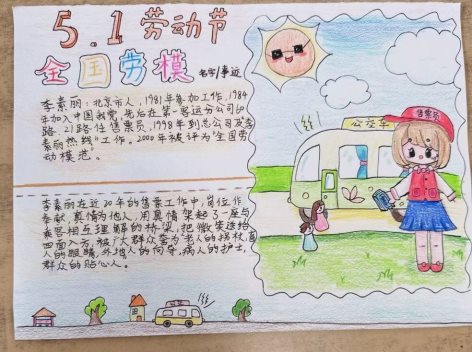 5.1劳动节
全国劳模
名字/事迹
李素丽：北京市人，1981年参加工作，1984
年加入中国共产党，先后在第一客运分公司60
路、21路任售票员，1998年到总公司及李
素丽热线"工作。2000年被评为"全国劳
动模范。
李素丽在近20年的售票工作中，岗位作
奉献，真情为他人，用真情架起了一座与
乘客相互理解的桥梁，把微笑送给
四面八方，被广大群众誉为老人的拐杖，盲
人的眼睛，外地人的向导，病人的护士，
群众的贴心人。
售票员
公交车